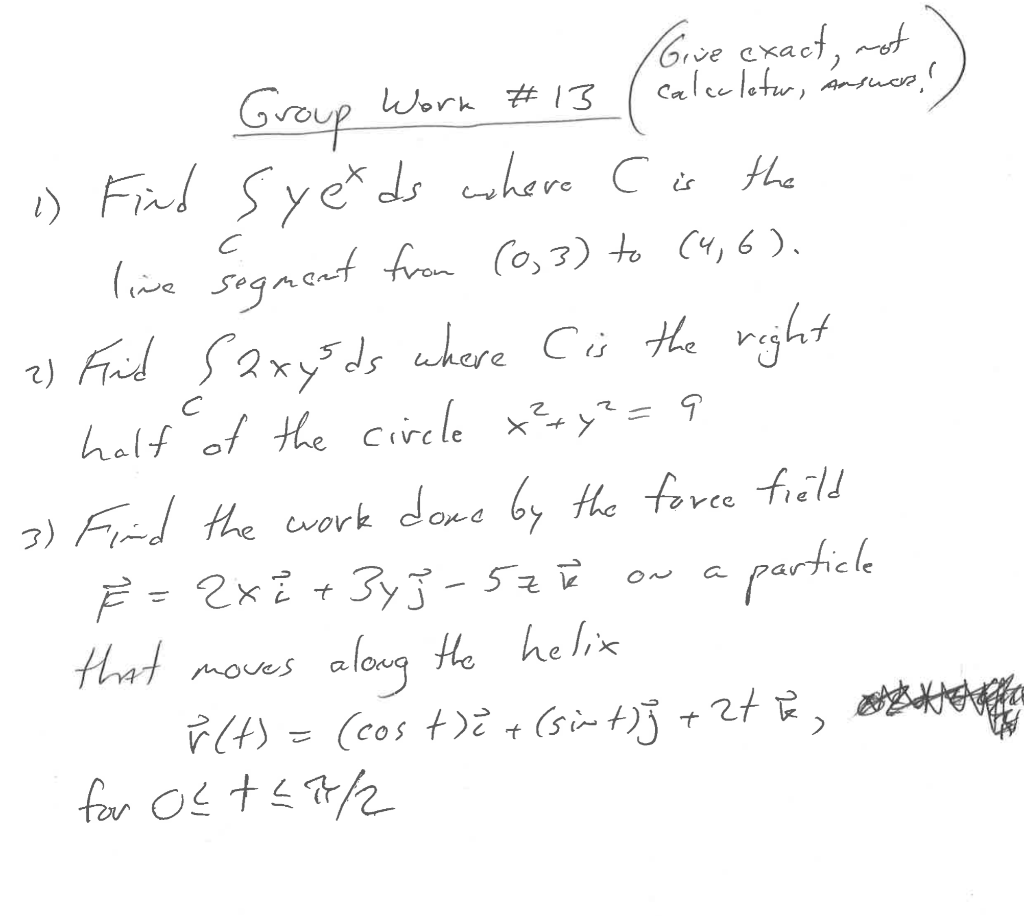 Group Work #13 (Give exact, not calculator, answers!)
1) Find ∫_C ye^x ds where C is the
line segment from (0,3) to (4,6).
2) Find ∫_C 2xy^5 ds where C is the right
half of the circle x^2+y^2=9
3) Find the work done by the force field
F⃗ = 2x i⃗ + 3y j⃗ - 5z k⃗ on a particle
that moves along the helix
r⃗(t) = (cos t) i⃗ + (sin t) j⃗ + 2t k⃗,
for 0≤t≤π/2